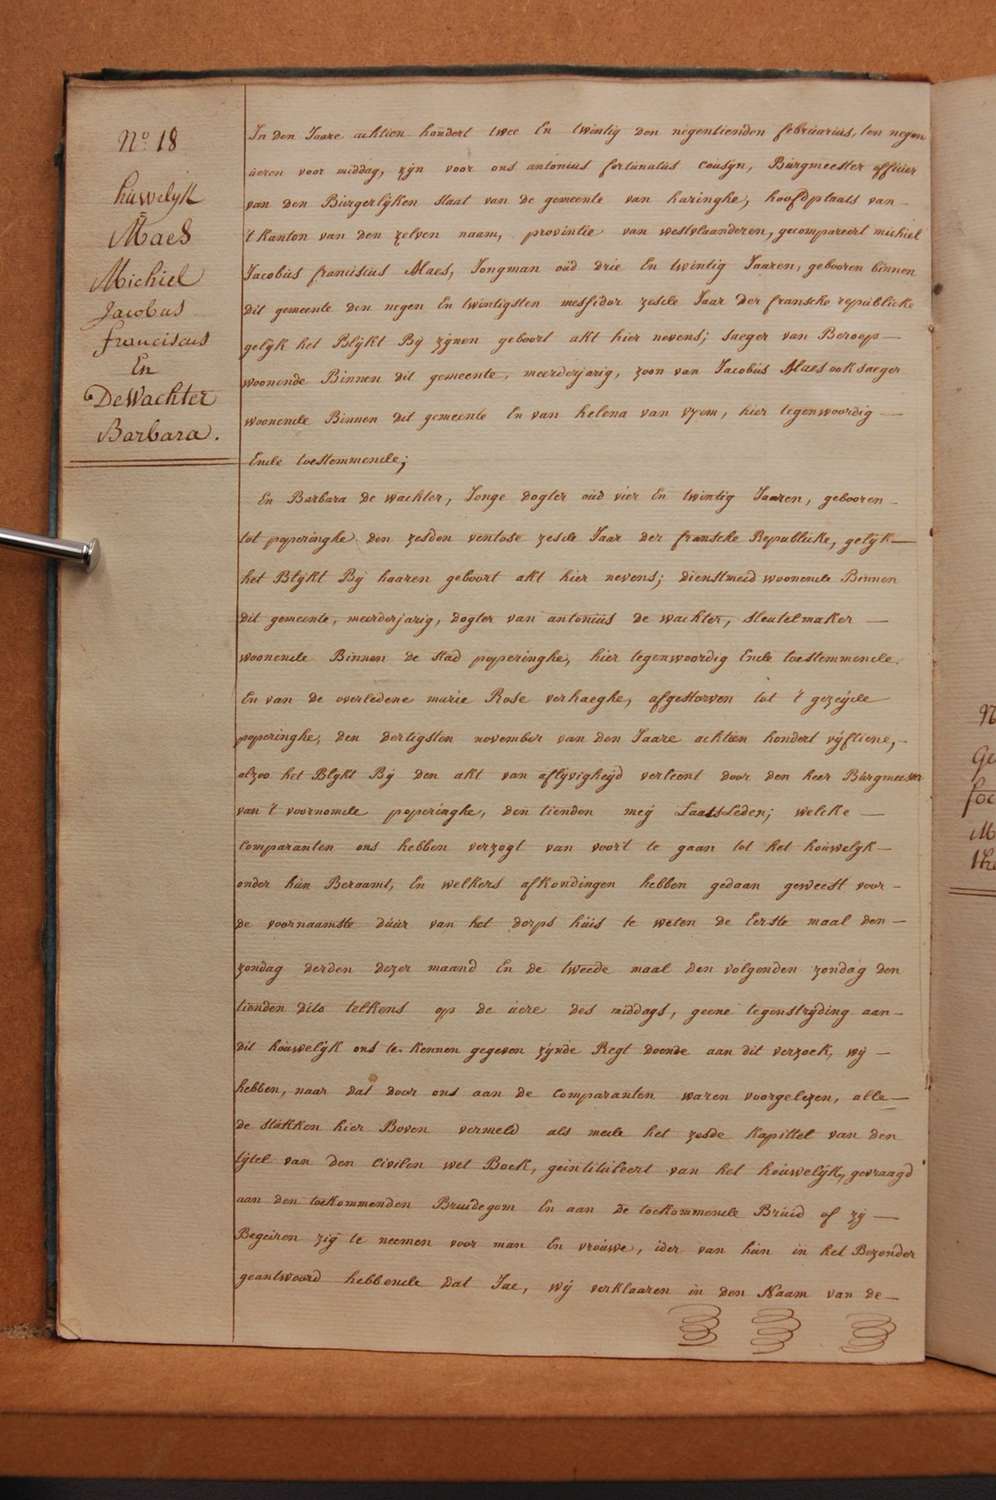 No. 18
huwelyk
Maes
Michiel
Jacobus
franciscus
En
DeWachter
Barbara.
In den Jaare achtien hondert twee En twintig den négentienden februarius, ten negen
ueren voor middag, zyn voor ons antonius fortunatus cousyn, Burgmeester officier
van den Burgerlyken staat van de gemeente van haringhe, hoofdplaats van
't kanton van den zelven naam, provintie van westvlaanderen, gecompareert michiel
Jacobus franciscus Maes, Jongman oud drie En twintig Jaaren, gebooren binnen
dit gemeente den negen En twintigsten messidor zesde Jaar der fransche republicke
gelyk het Blykt By zynen geboort akt hier nevens; saeger van Beroep
woonende Binnen dit gemeente, meerderjarig, zoon van Jacobus Maes ook saeger
woonende Binnen dit gemeente En van helena van uxem, hier tegenwoordig
Ende toestemmende;
En Barbara de wachter, Jonge dogter oud vier En twintig Jaaren, gebooren
tot poperinghe den zesden ventose zesde Jaar der fransche Republicke, gelyk
het Blykt By haaren geboort akt hier nevens; dienstmeid woonende Binnen
dit gemeente, meerderjarig, dogter van antonius de wachter, sleutelmaker
woonende Binnen de stad poperinghe, hier tegenwoordig Ende toestemmende.
En van de overledene marie Rose verhaeghe, afgestorven tot 't gezeyde
poperinghe, den dertigsten november van den Jaare achtien hondert vyftiene,
alzoo het Blykt By den akt van aflyvigheyd verleent door den heer Burgmeester
van 't voornomde poperinghe, den tienden mey Laatsleden; welcke
comparanten ons hebben verzogt van voort te gaan tot het houwelyk
onder hun Beraamt, En welkers afkondingen hebben gedaan geweest voor
de voornaamste duur van het dorps huis te weten de Eerste maal den
zondag derden dezer maand En de tweede maal den volgenden zondag den
tienden dito telkens op de uere des middags, geene tegenstryding aan
dit houwelyk ons te kennen gegeven zynde Regt doende aan dit verzoek, wy
hebben, naar dat door ons aan de comparanten waren voorgelezen, alle
de stukken hier Boven vermeld als mede het zesde kapittel van den
tytel van den civilen wet Boek, geintituleert van het houwelyk, gevraagd
aan den toekommenden Bruidegom En aan de toekommende Bruid of zy
Begeiren zig te neemen voor man En vrouwe, ider van hun in het Bezonder
geantwoord hebbende dat Jae, wy verklaaren in den Naam van de